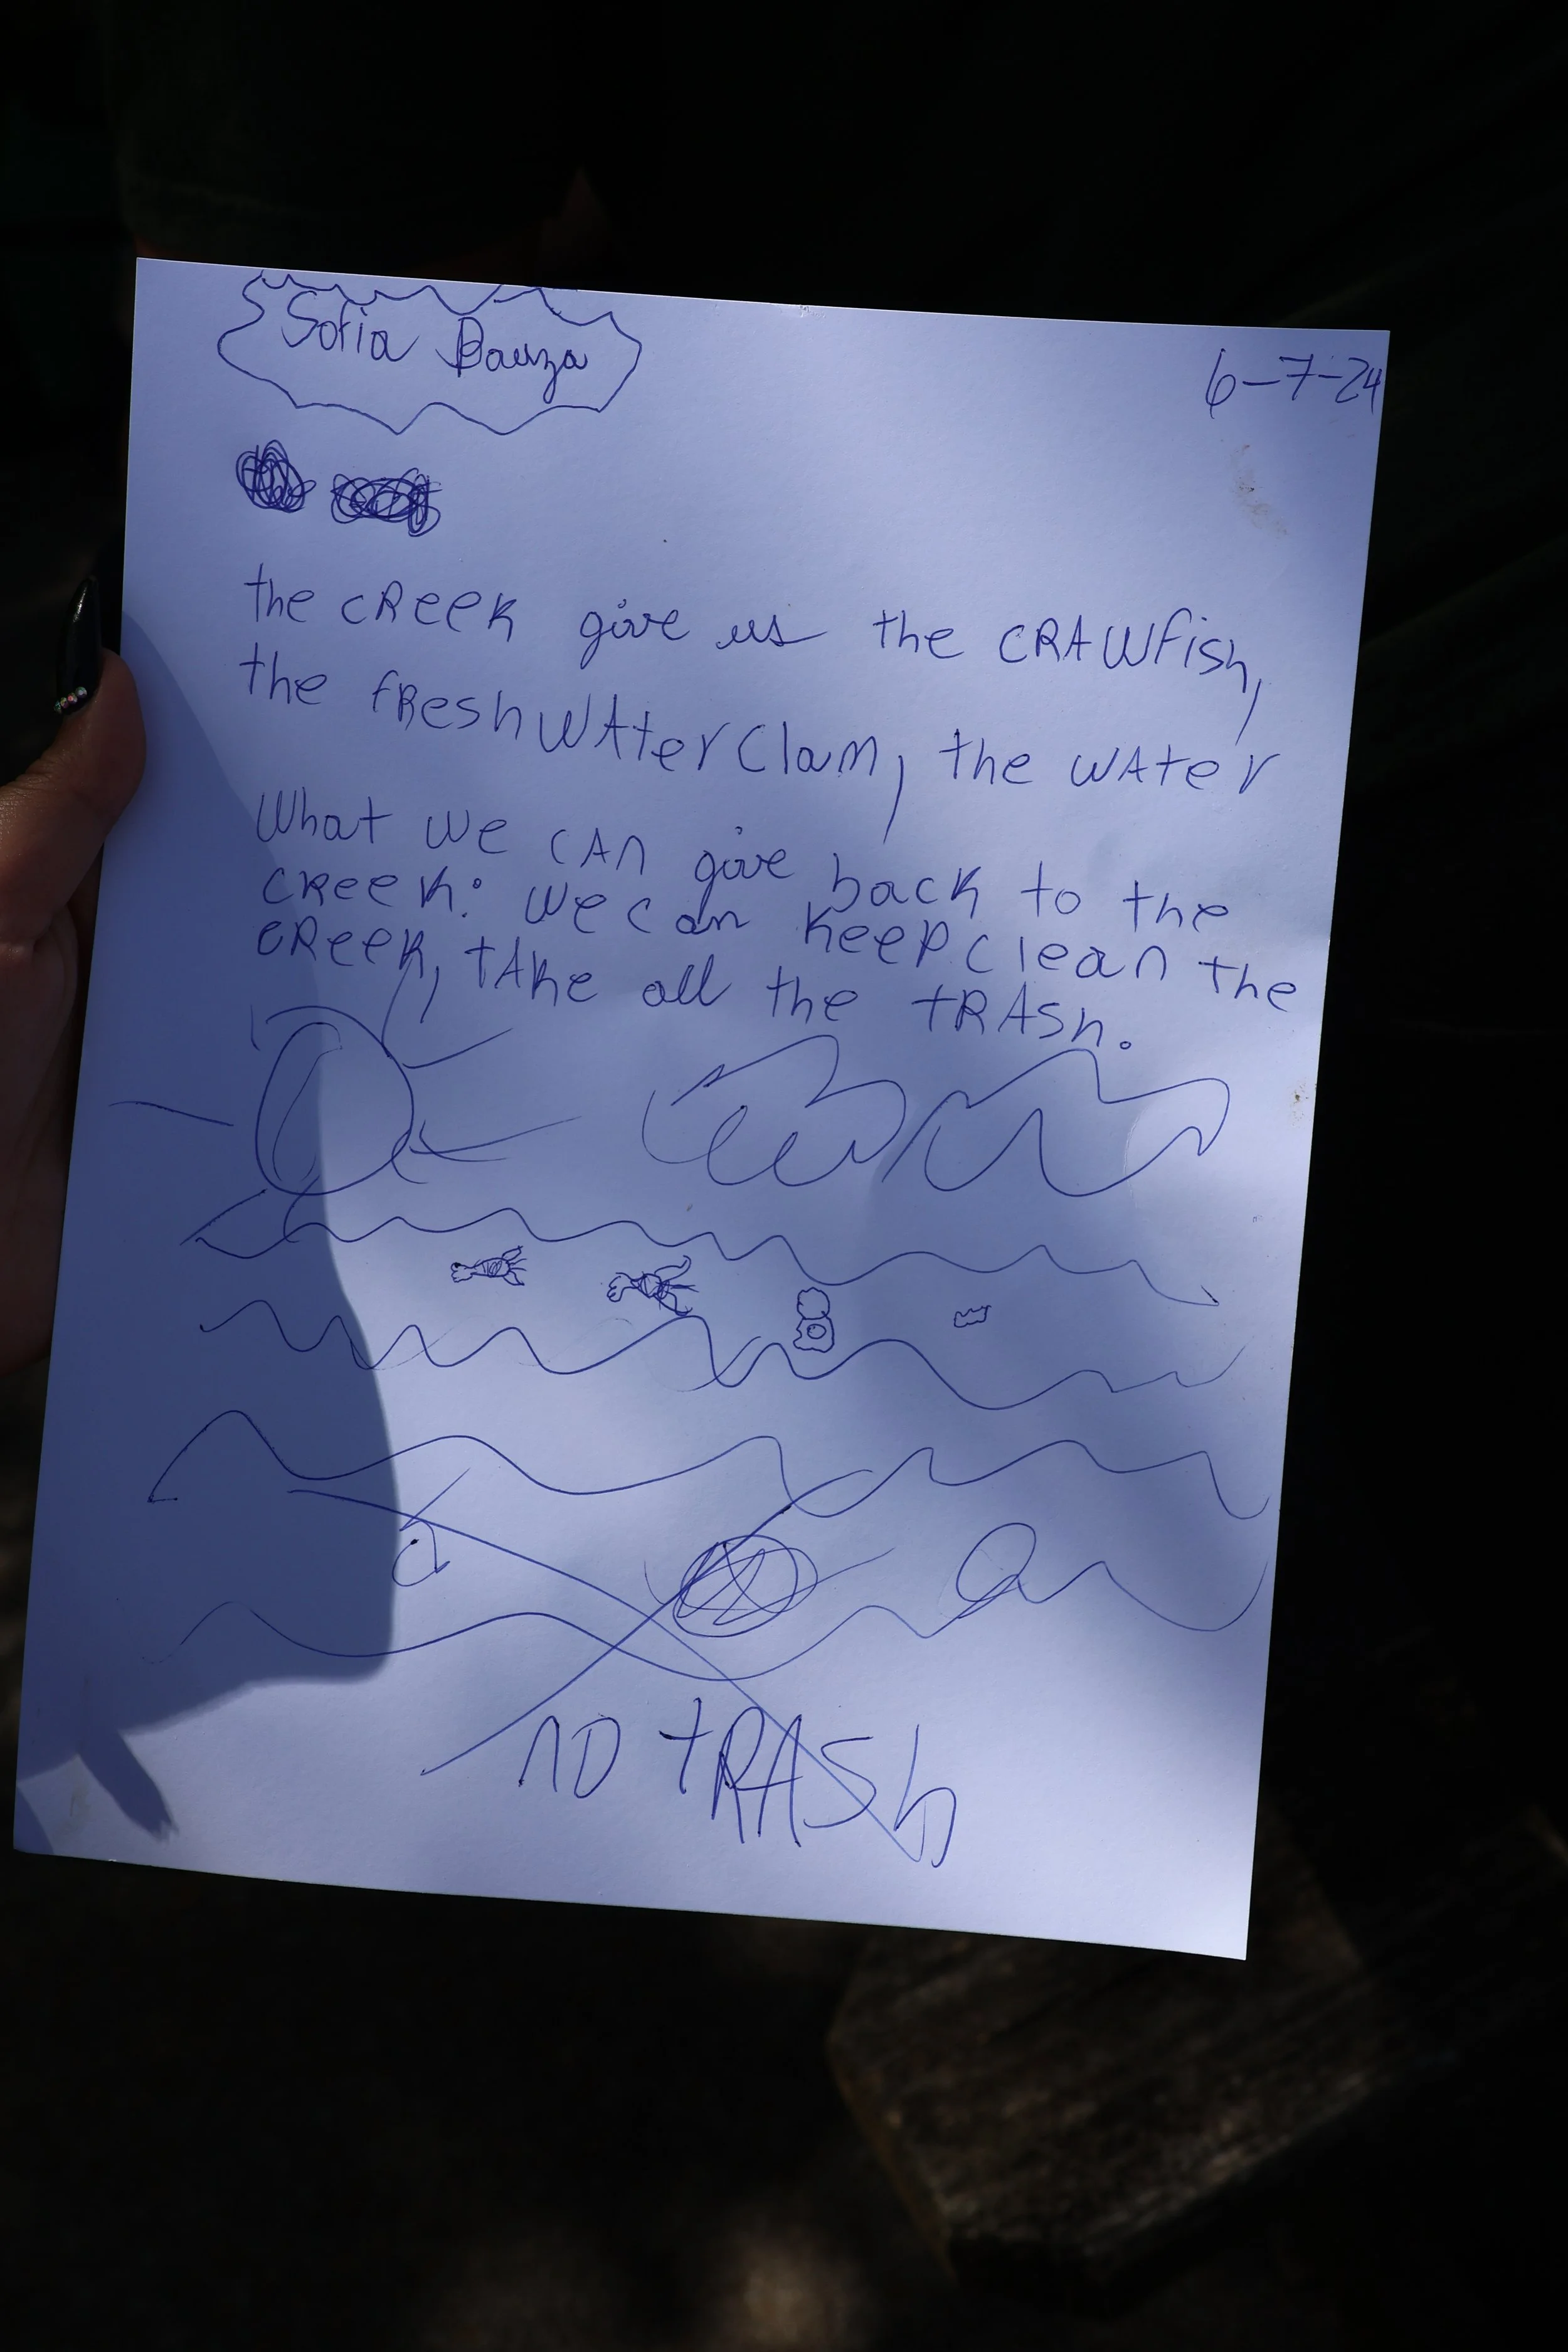 Sofia Bauza
6-7-24
the CReek give us the CRAWfish,
the fReshWAter Clam, the WAter
What we CAn give back to the
CReek: We can keep clean the
CReek, tAke all the tRASh.
no tRASh